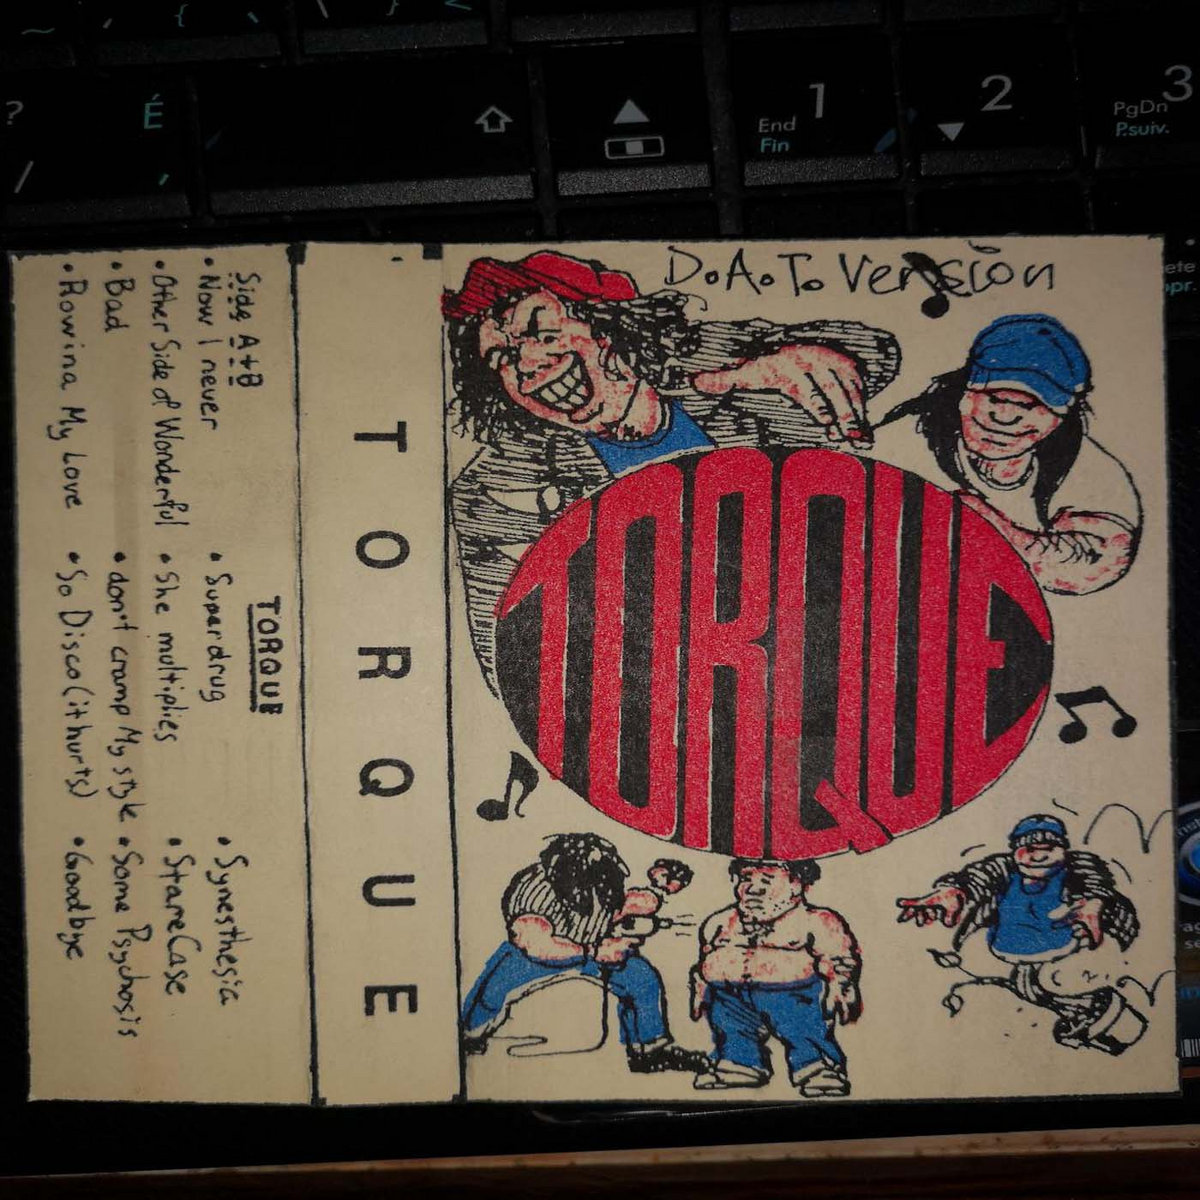 D.A.T. Version
TORQUE
TORQUE
Side A + B
TORQUE
• Now I never
• Superdrug
• Synesthesia
• Other Side of Wonderful
• She multiplies
• StareCase
• Bad
• don't cramp My style
• Some Psychosis
• Rowina My Love
• So Disco (it hurts)
• Goodbye
?
É
/
,
1
End
Fin
2
3
PgDn
P.suiv.